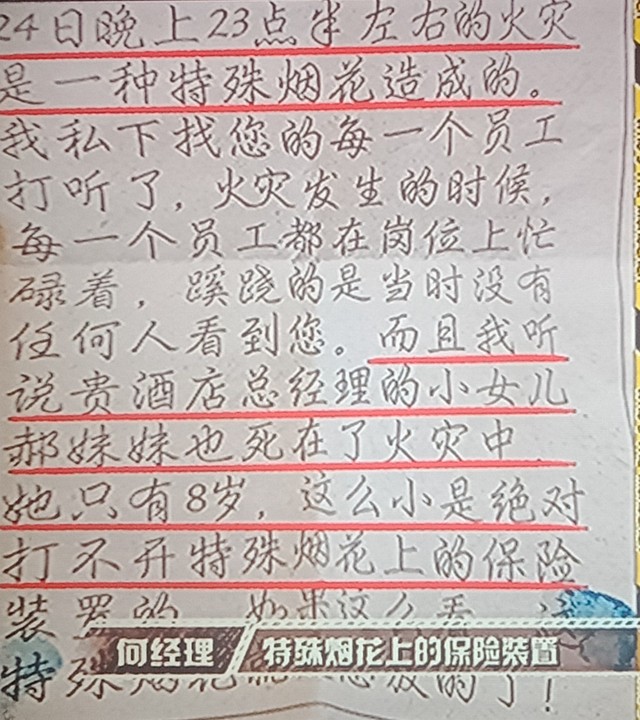 24日晚上23点半左右的火灾
是一种特殊烟花造成的。
我私下找您的每一个员工
打听了，火灾发生的时候，
每一个员工都在岗位上忙
碌着，蹊跷的是当时没有
任何人看到您。而且我听
说贵酒店总经理的小女儿
郝妹妹也死在了火灾中
她只有8岁，这么小是绝对
打不开特殊烟花上的保险
装置的 如果这么看
何经理 特殊烟花上的保险装置
特殊烟花 的了！